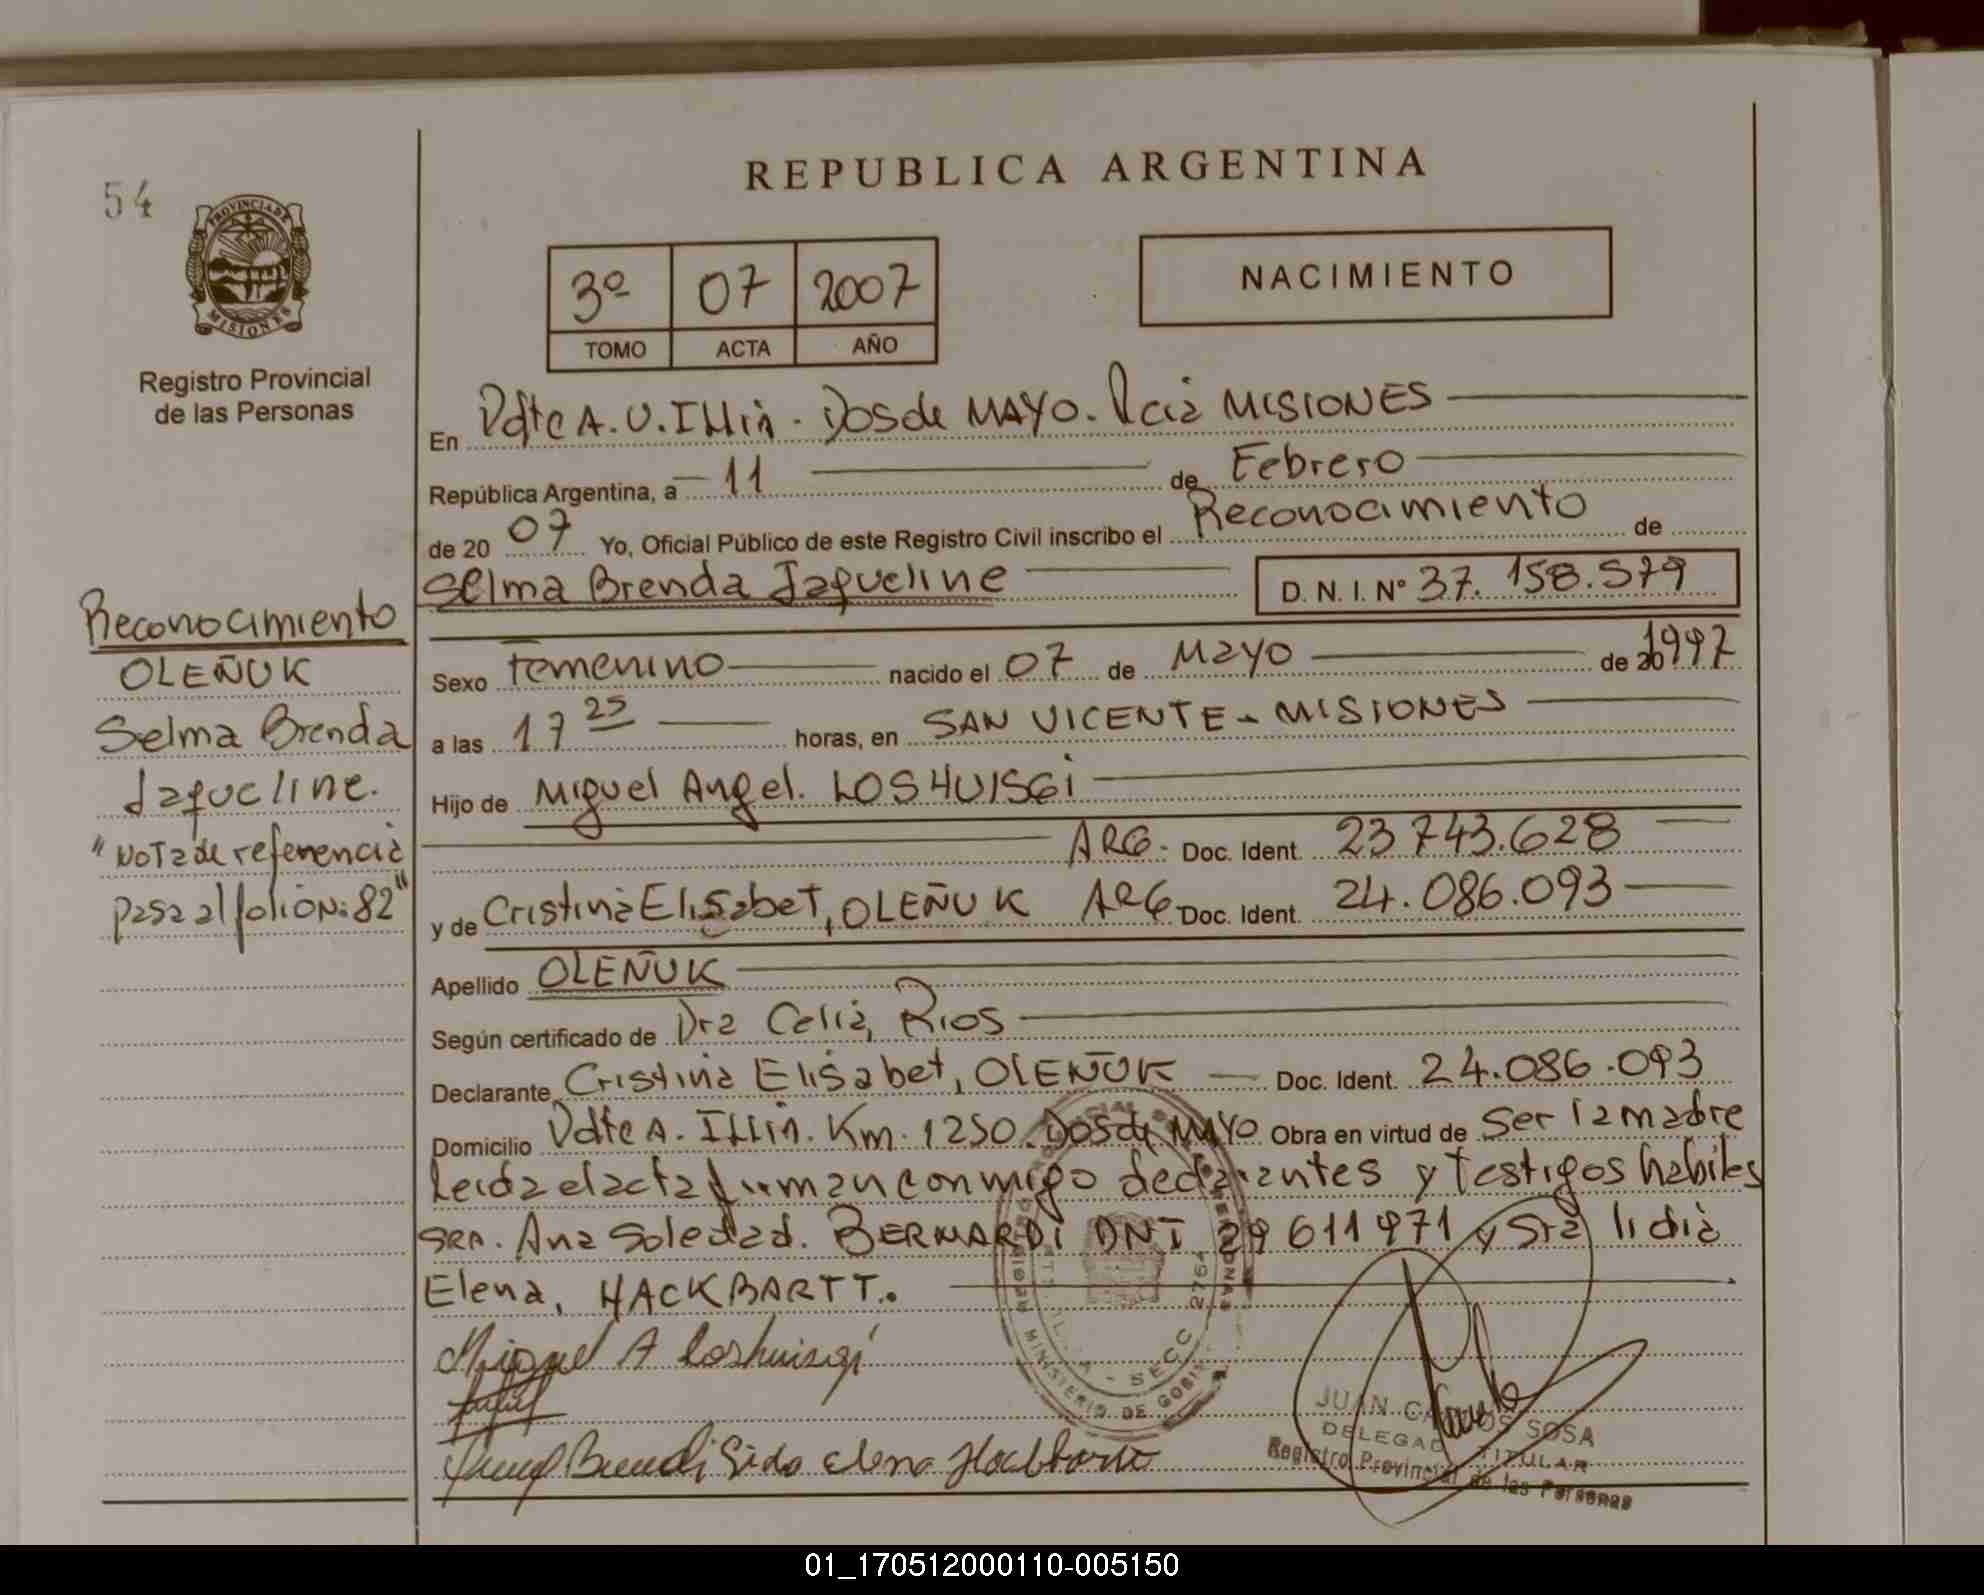 54
PROVINCIA DE
MISIONES
Registro Provincial
de las Personas
REPUBLICA ARGENTINA
3º 07 2007
TOMO ACTA AÑO
NACIMIENTO
En Pdte A. U. Illia - Dos de MAYO. Pcia MISIONES
República Argentina, a 11 de Febrero
de 20 07 Yo, Oficial Público de este Registro Civil inscribo el Reconocimiento de
Selma Brenda Jaqueline D. N. I. Nº 37.158.579
Sexo Femenino nacido el 07 de Mayo de 20 1997
a las 17 25 horas, en SAN VICENTE - MISIONES
Hijo de Miguel Angel. LOSHUISGi
ARG. Doc. Ident. 23 743.628
y de Cristina Elisabet, OLEÑUK ARG. Doc. Ident. 24.086.093
Apellido OLEÑUK
Según certificado de Dra Celia, Rios
Declarante Cristina Elisabet, OLEÑUK Doc. Ident. 24.086.093
Domicilio Pdte A. Illia. Km. 1250. Dos de MAYO Obra en virtud de Ser la madre
Leida el acta firman conmigo declarantes y testigos habiles
SRA. Ana Soledad. BERNARDi DNI 29 611 971 y Sra lidia
Elena, HACKBARTT.
Reconocimiento
OLEÑUK
Selma Brenda
Jaqueline.
"NOTa de referencia
pasa al folio Nº 82"
Miguel A Loshuisgi
Lida Elena Hackbartt
SECC 2764
MINISTERIO DE GOBI
JUAN CARLOS SOSA
DELEGADO TITULAR
Registro Provincial de las Personas
01_170512000110-005150